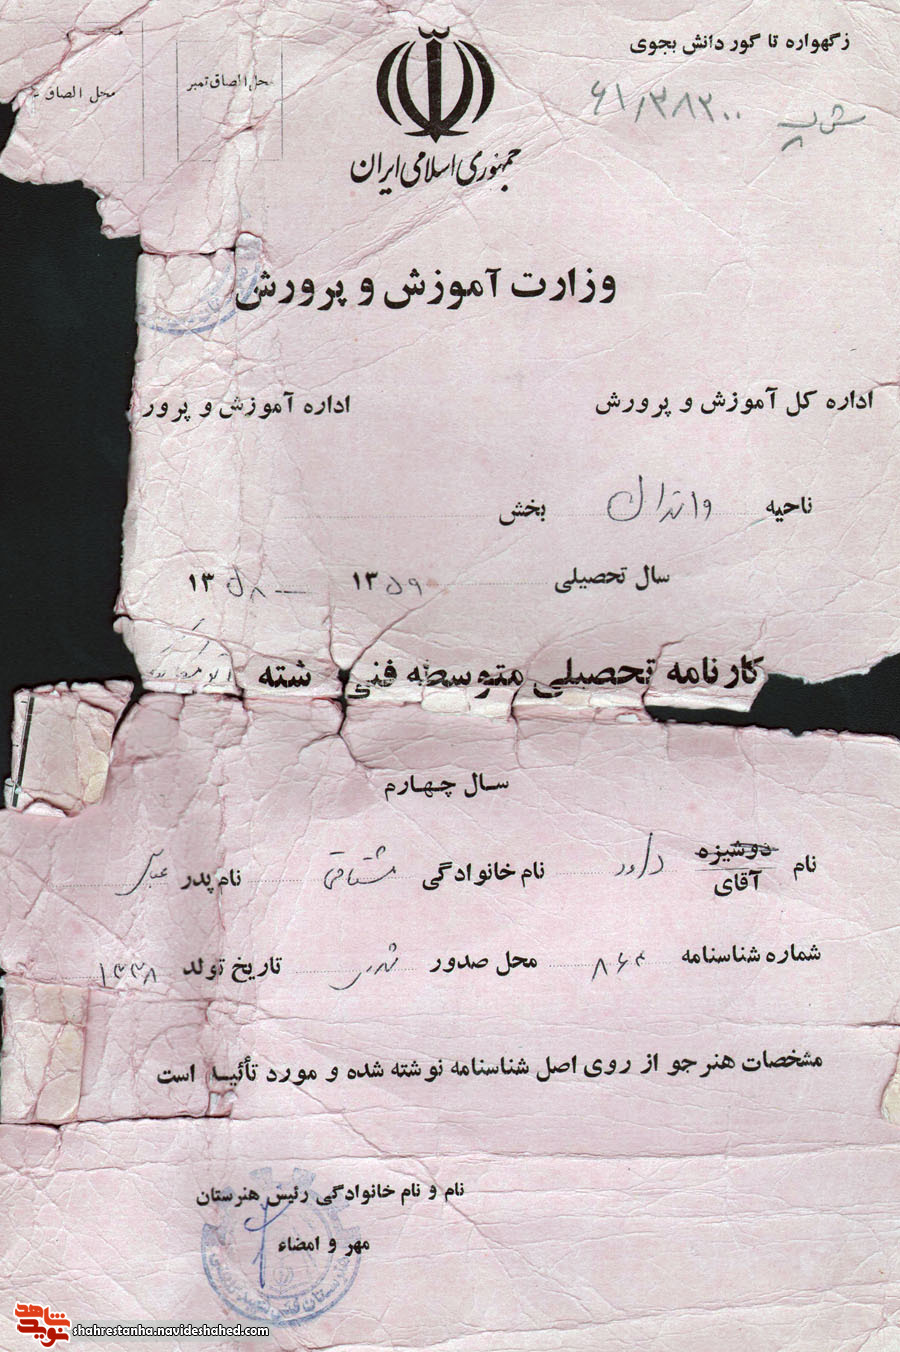 ز گهواره تا گور دانش بجوی
محل الصاق تمبر
محل الصاق
۶۱/۳۸۲۰۰
جمهوری اسلامی ایران
وزارت آموزش و پرورش
اداره کل آموزش و پرورش اداره آموزش و پرور
ناحیه بخش
سال تحصیلی ۱۳۵۹ — ۱۳۵۸
کارنامه تحصیلی متوسطه فنی شته
سال چهارم
نام دوشیزه آقای داود نام خانوادگی مشتاقی نام پدر عباس
شماره شناسنامه ۸۶۴ محل صدور تاریخ تولد ۱۳۳۸
مشخصات هنرجو از روی اصل شناسنامه نوشته شده و مورد تأئید است
نام و نام خانوادگی رئیس هنرستان
مهر و امضاء
نوید شاهد
shahrestanha.navideshahed.com